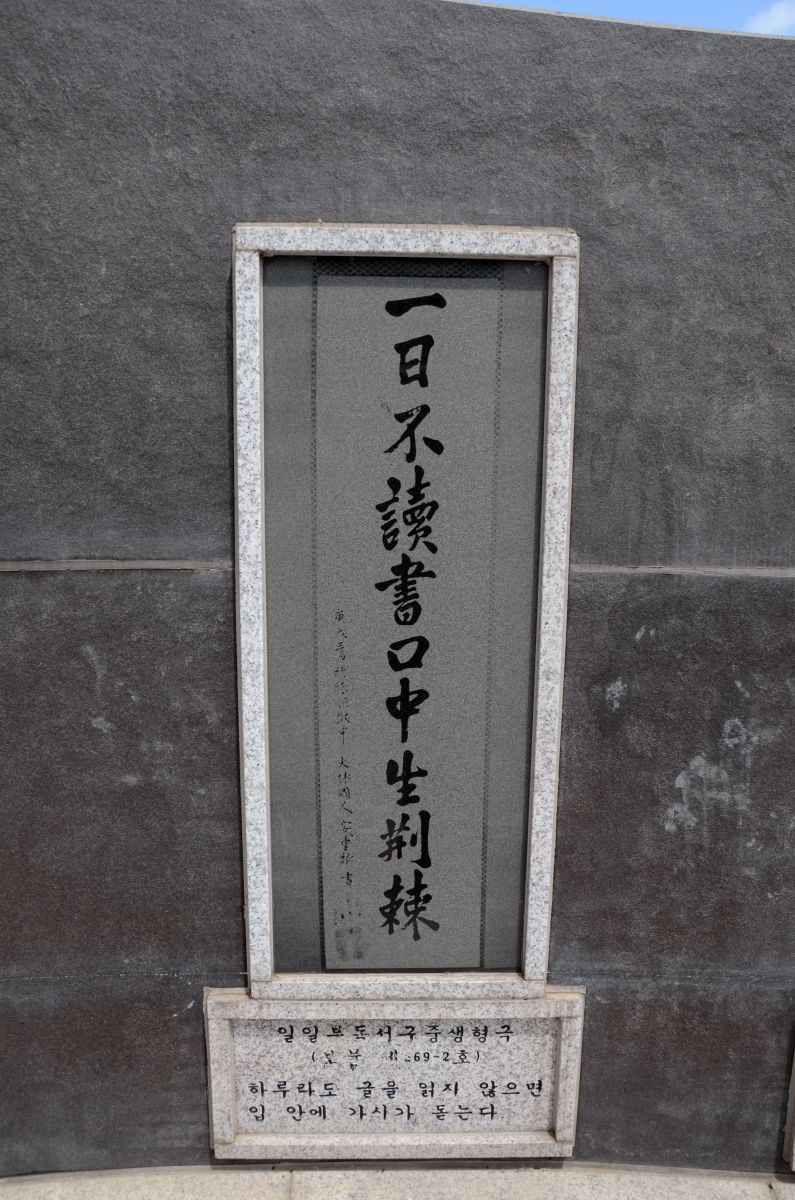 一日不讀書口中生荊棘
庚戌三月 於旅順獄中 大韓國人 安重根 書
일일부독서구중생형극
(보물 제569-2호)
하루라도 글을 읽지 않으면
입 안에 가시가 돋는다